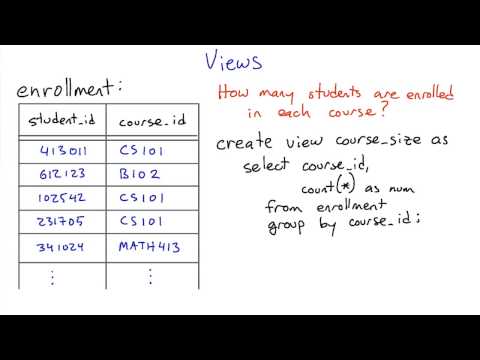 Views
enrollment:
student_id course_id
413011 CS101
612123 B102
102542 CS101
231705 CS101
341024 MATH413
⋮ ⋮
How many students are enrolled
in each course?
create view course_size as
select course_id,
count(*) as num
from enrollment
group by course_id;